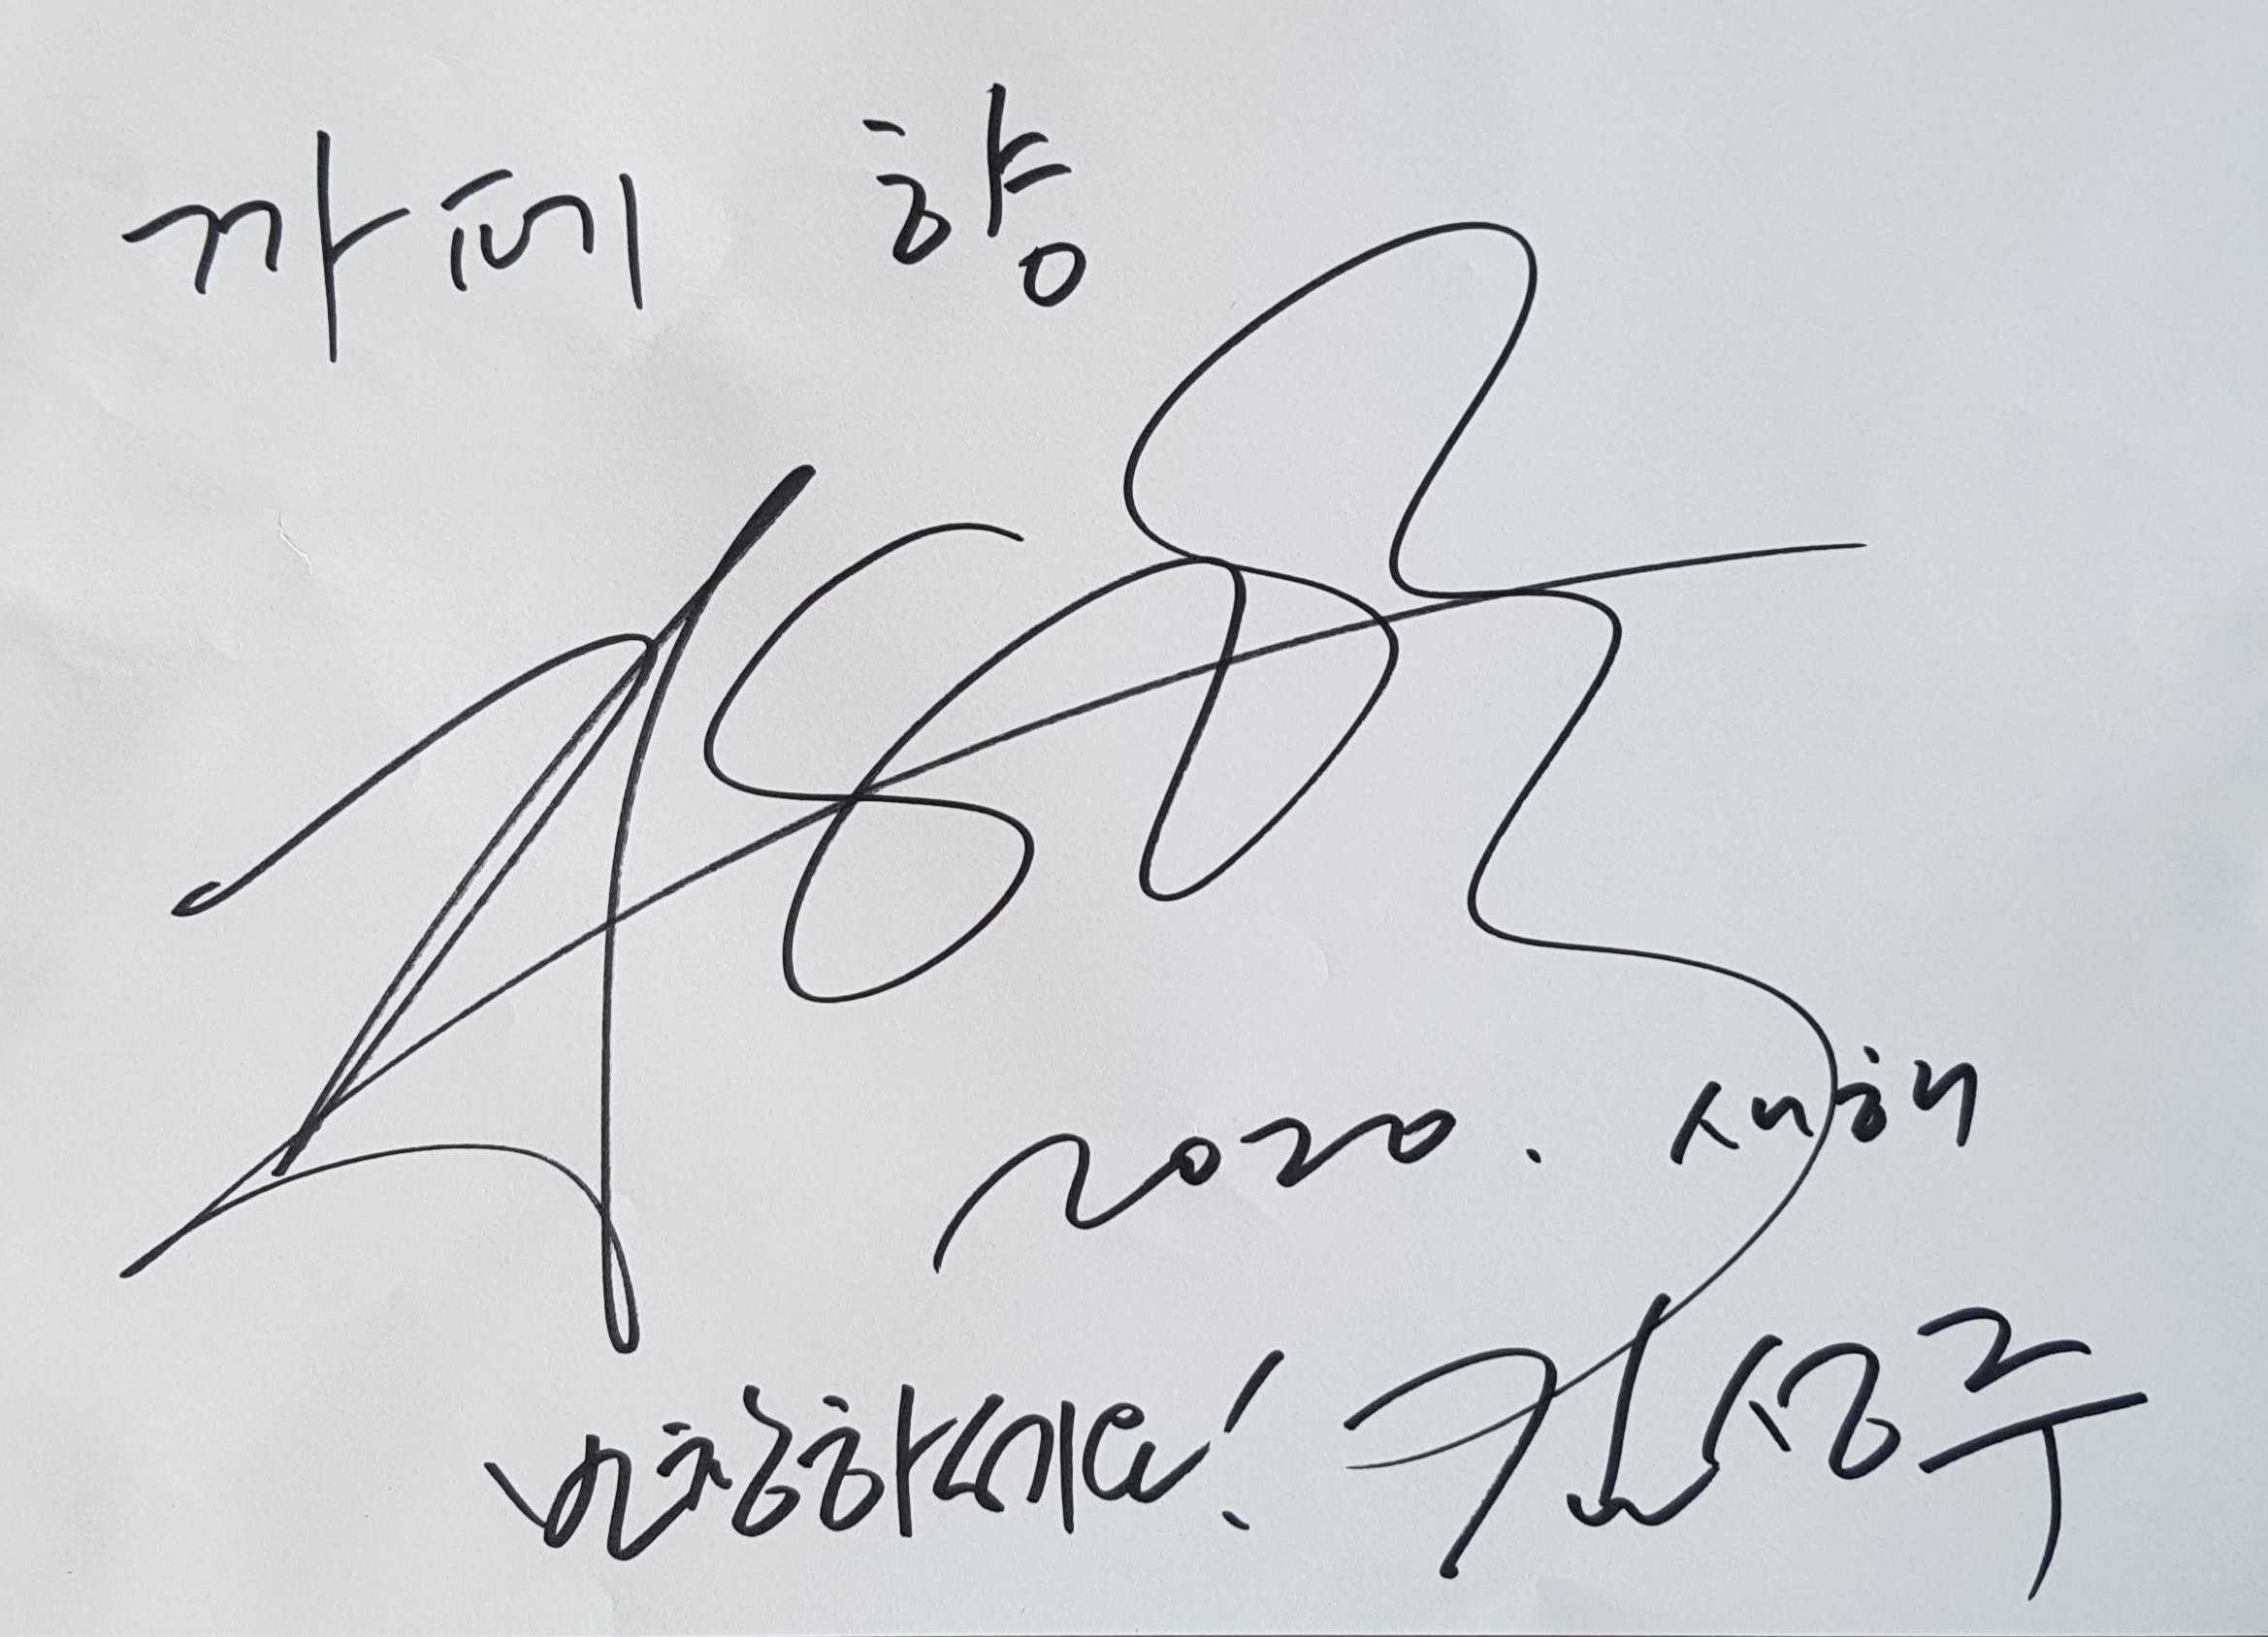 까페 향
2020. 새해
번창하세요! 김성주